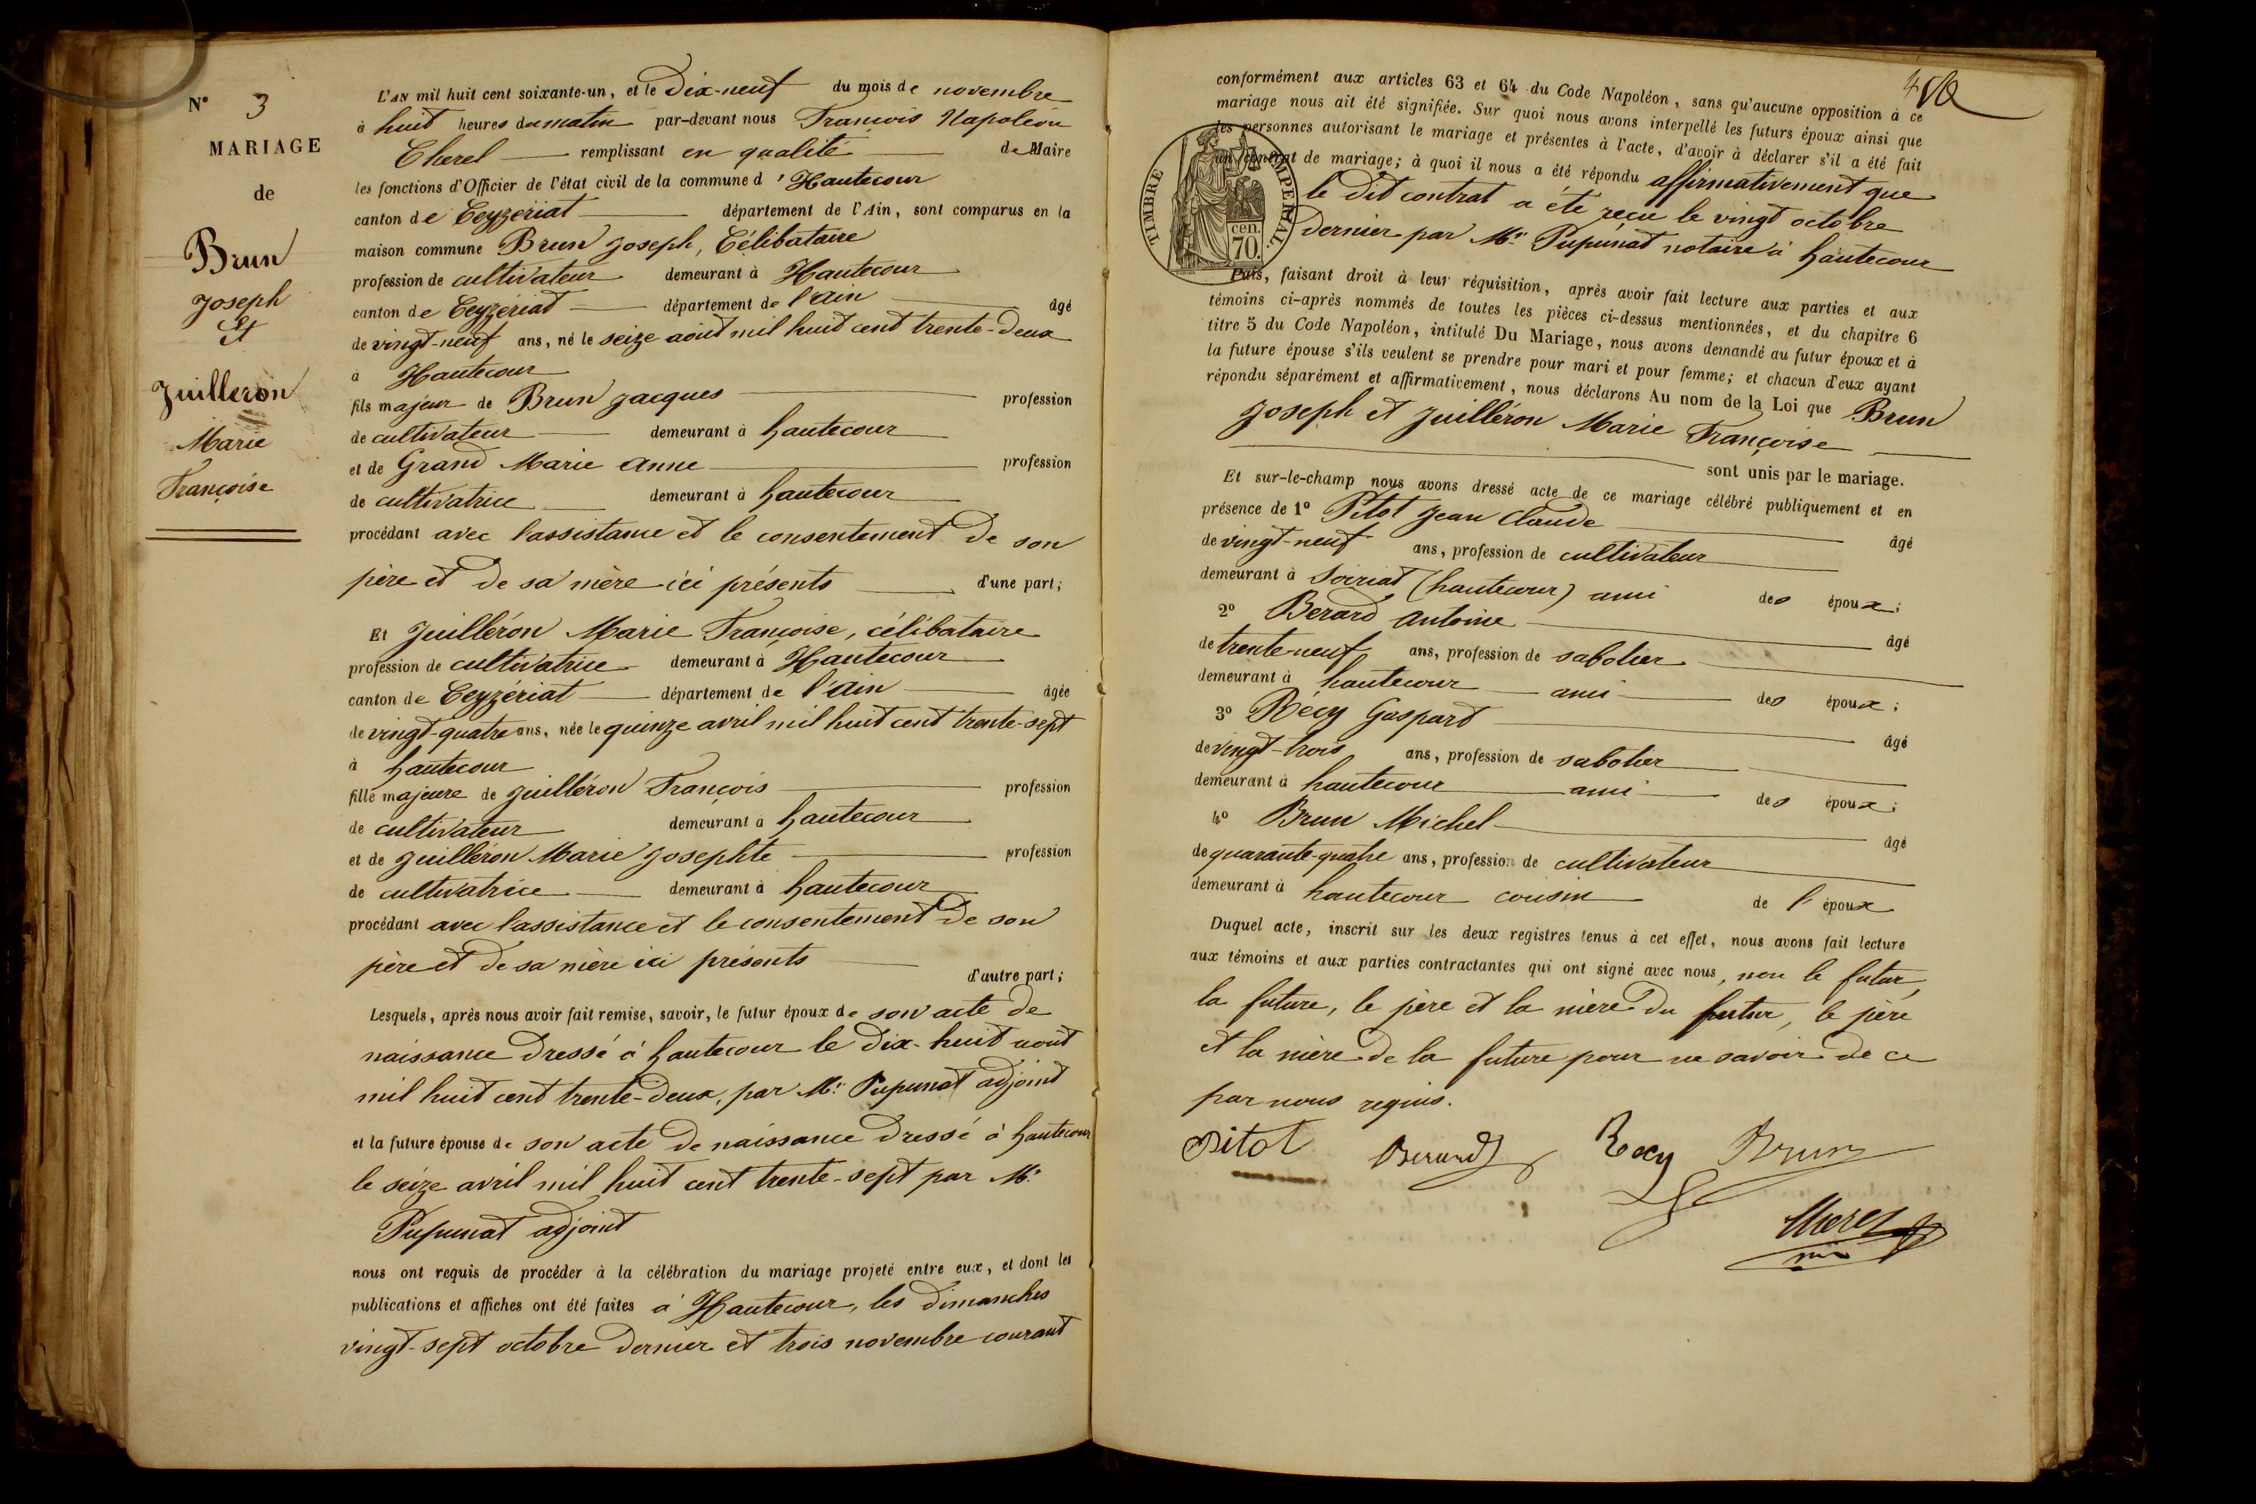 N° 3
MARIAGE
de
Brun
Joseph
Et
Juilleron
Marie
Françoise
L'AN mil huit cent soixante-un, et le Dix-neuf du mois de novembre
à huit heures du matin par-devant nous François Napoléon
Cherel remplissant en qualité de Maire
les fonctions d'Officier de l'état civil de la commune d'Hautecour
canton de Ceyzériat département de l'Ain, sont comparus en la
maison commune Brun Joseph, Célibataire
profession de cultivateur demeurant à Hautecour
canton de Ceyzériat département de l'Ain âgé
de vingt-neuf ans, né le seize aout mil huit cent trente-deux
à Hautecour
fils majeur de Brun Jacques profession
de cultivateur demeurant à hautecour
et de Grand Marie Anne profession
de cultivatrice demeurant à hautecour
procédant avec l'assistance et le consentement de son
père et de sa mère ici présents d'une part;
Et Juilléron Marie Françoise, célibataire
profession de cultivatrice demeurant à Hautecour
canton de Ceyzériat département de l'Ain âgée
de vingt-quatre ans, née le quinze avril mil huit cent trente-sept
à hautecour
fille majeure de Juilléron François profession
de cultivateur demeurant à hautecour
et de Juilléron Marie Josephte profession
de cultivatrice demeurant à hautecour
procédant avec l'assistance et le consentement de son
père et de sa mère ici présents d'autre part;
Lesquels, après nous avoir fait remise, savoir, le futur époux de son acte de
naissance dressé à hautecour le dix-huit aout
mil huit cent trente-deux, par Mr Pupunat adjoint
et la future épouse de son acte de naissance dressé à hautecour
le seize avril mil huit cent trente-sept par Mr
Pupunat adjoint
nous ont requis de procéder à la célébration du mariage projeté entre eux, et dont les
publications et affiches ont été faites à Hautecour, les dimanches
vingt-sept octobre dernier et trois novembre courant
conformément aux articles 63 et 64 du Code Napoléon, sans qu'aucune opposition à ce
mariage nous ait été signifiée. Sur quoi nous avons interpellé les futurs époux ainsi que
les personnes autorisant le mariage et présentes à l'acte, d'avoir à déclarer s'il a été fait
un contrat de mariage; à quoi il nous a été répondu affirmativement que
le dit contrat a été reçu le vingt octobre
dernier par Mr Pupunat notaire à hautecour
TIMBRE IMPERIAL.
cen.
70.
Puis, faisant droit à leur réquisition, après avoir fait lecture aux parties et aux
témoins ci-après nommés de toutes les pièces ci-dessus mentionnées, et du chapitre 6
titre 5 du Code Napoléon, intitulé Du Mariage, nous avons demandé au futur époux et à
la future épouse s'ils veulent se prendre pour mari et pour femme; et chacun d'eux ayant
répondu séparément et affirmativement, nous déclarons Au nom de la Loi que Brun
Joseph et Juilléron Marie Françoise
sont unis par le mariage.
Et sur-le-champ nous avons dressé acte de ce mariage célébré publiquement et en
présence de 1° Pitot Jean Claude âgé
de vingt-neuf ans, profession de cultivateur
demeurant à Soiriat (hautecour) ami des époux;
2° Berard Antoine âgé
de trente-neuf ans, profession de sabotier
demeurant à hautecour ami des époux;
3° Récy Gaspard âgé
de vingt-trois ans, profession de sabotier
demeurant à hautecour ami des époux;
4° Brun Michel âgé
de quarante-quatre ans, profession de cultivateur
demeurant à hautecour cousin de l'époux
Duquel acte, inscrit sur les deux registres tenus à cet effet, nous avons fait lecture
aux témoins et aux parties contractantes qui ont signé avec nous, non le futur,
la future, le père et la mère du futur, le père
et la mère de la future pour ne savoir de ce
par nous requis.
Pitot Berard Recy Brun
Cherel